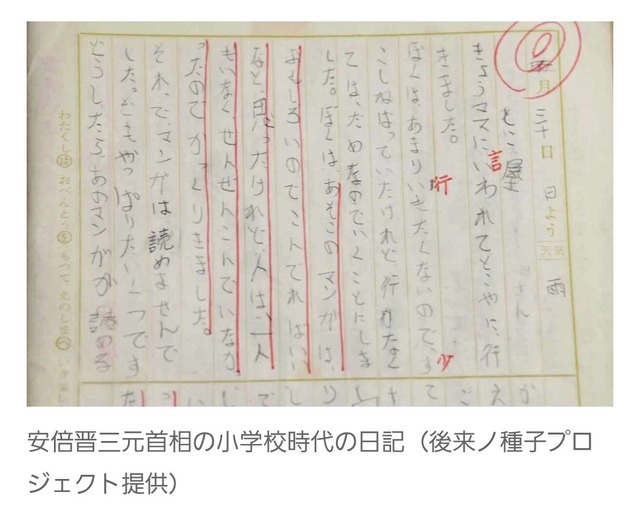 五月 三十日 日よう 天気 雨
とこ屋さん
きょうママにいわれてとこやに、行
言
きました。
ぼくは、あまりいきたくないので、すこし
行
少
ねばっていたけれど、行かなく
ては、だめなのでいくことにしま
した。ぼくは、あそこのマンガは、
おもしろいのでこんでればいい
なと、思ったけれど、人は、一人
もいなく、ぜんぜんこんでいなか
ったのでがっくりきました。
それで、マンガは読めませんで
した。でもやっぱりたい
どうしたら、あのマンガが読める
わたくしは おべんとうを もって えのしまへ いきまし
安倍晋三元首相の小学校時代の日記（後来ノ種子プロ
ジェクト提供）